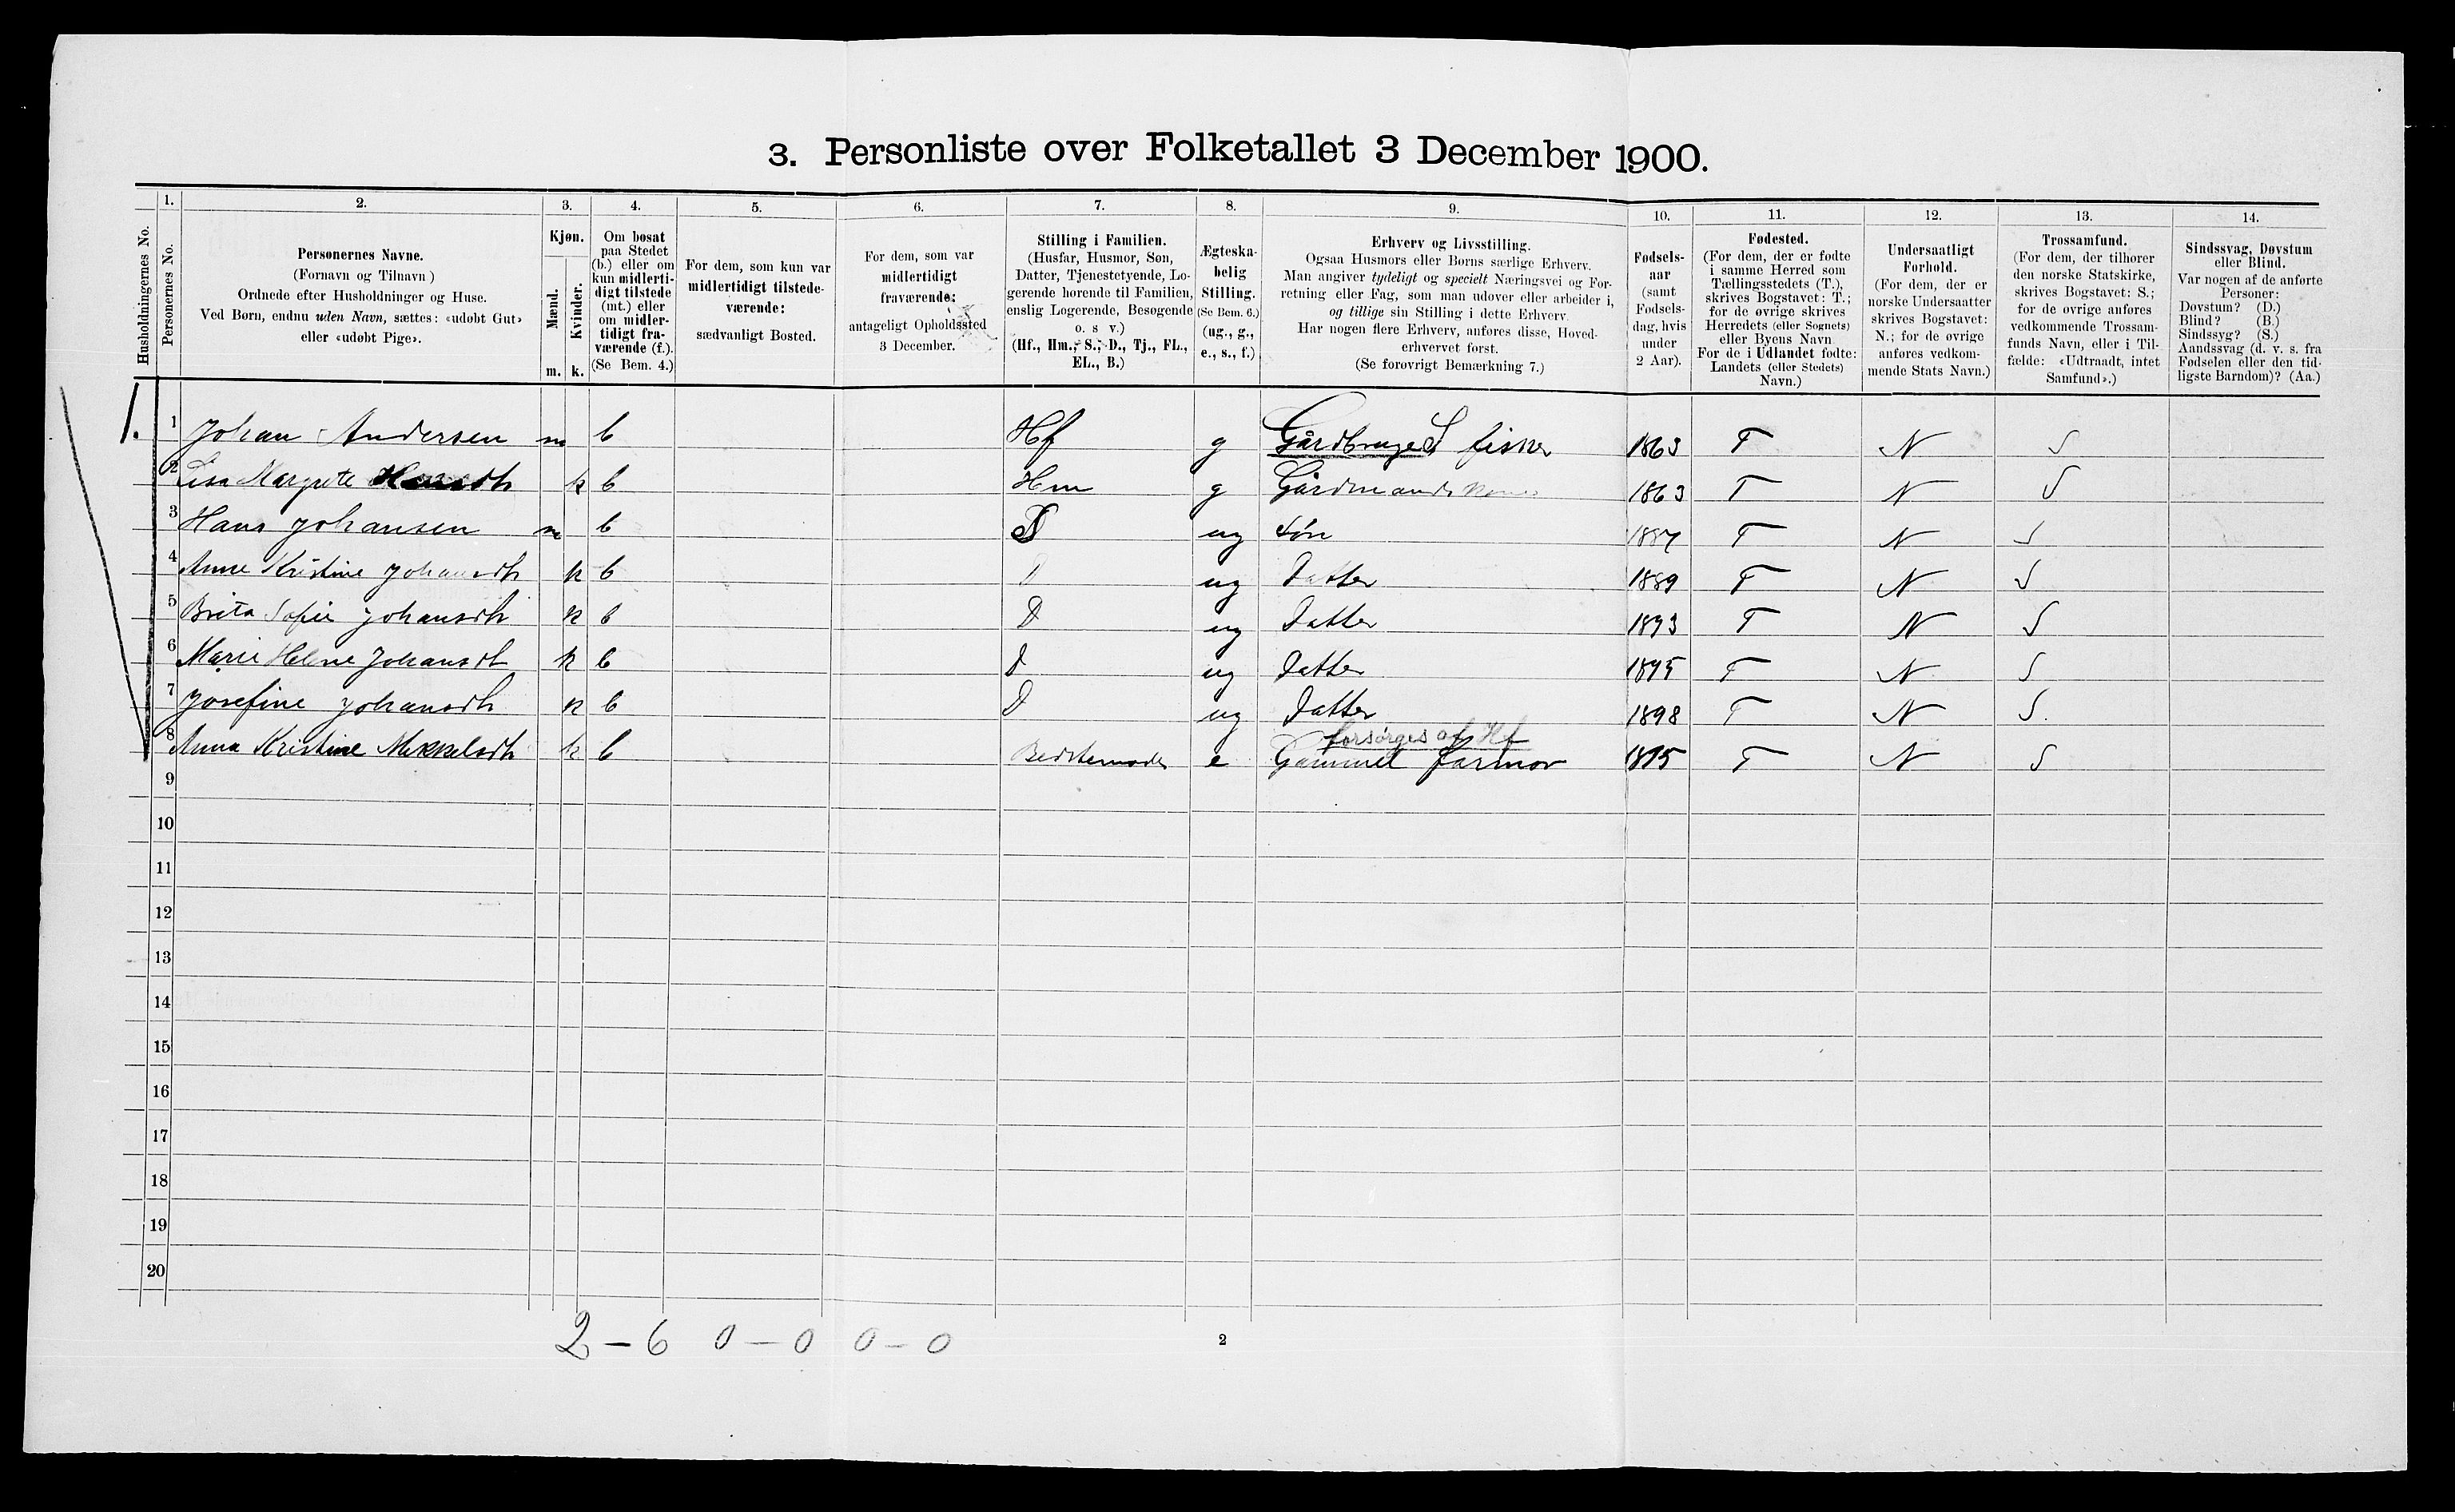 3. Personliste over Folketallet 3 December 1900.
1. 2. 3. 4. 5. 6. 7. 8. 9. 10. 11. 12. 13. 14.
Husholdningernes No.
Personernes No.
Personernes Navne.
(Fornavn og Tilnavn)
Ordnede efter Husholdninger og Huse.
Ved Børn, endnu uden Navn, sættes: «udøbt Gut»
eller «udøbt Pige».
Kjøn.
Mænd.
Kvinder.
m. k.
Om bosat
paa Stedet
(b.) eller om
kun midlerti-
digt tilstede
(mt.) eller
om midler-
tidigt fra-
værende (f.).
(Se Bem. 4.)
For dem, som kun var
midlertidigt tilstede-
værende:
sædvanligt Bosted.
For dem, som var
midlertidigt
fraværende:
antageligt Opholdssted
3 December.
Stilling i Familien.
(Husfar, Husmor, Søn,
Datter, Tjenestetyende, Lo-
gerende hørende til Familien,
enslig Logerende, Besøgende
o. s v.)
(Hf., Hm., S., D., Tj., FL.,
EL., B.)
Ægteska-
belig
Stilling.
(Se Bem. 6.)
(ug., g.,
e., s., f.)
Erhverv og Livsstilling.
Ogsaa Husmors eller Børns særlige Erhverv.
Man angiver tydeligt og specielt Næringsvei og For-
retning eller Fag, som man udøver eller arbeider i,
og tillige sin Stilling i dette Erhverv.
Har nogen flere Erhverv, anføres disse, Hoved-
erhvervet først.
(Se forøvrigt Bemærkning 7.)
Fødsels-
aar
(samt
Fødsels-
dag, hvis
under
2 Aar).
Fødested.
(For dem, der er fødte
i samme Herred som
Tællingsstedets (T.),
skrives Bogstavet: T.;
for de øvrige skrives
Herredets (eller Sognets)
eller Byens Navn.
For de i Udlandet fødte:
Landets (eller Stedets)
Navn.)
Undersaatligt
Forhold.
(For dem, der er
norske Undersaatter
skrives Bogstavet:
N.; for de øvrige
anføres vedkom-
mende Stats Navn.)
Trossamfund.
(For dem, der tilhører
den norske Statskirke,
skrives Bogstavet: S.;
for de øvrige anføres
vedkommende Trossam-
funds Navn, eller i Til-
fælde: «Udtraadt, intet
Samfund».)
Sindssvag, Døvstum
eller Blind.
Var nogen af de anførte
Personer:
Døvstum? (D.)
Blind? (B.)
Sindssyg? (S.)
Aandssvag (d. v. s. fra
Fødselen eller den tid-
ligste Barndom)? (Aa.)
1. 1 Johan Andersen m b Hf g Gårdbruger S fisker 1863 T N S
2 Lisa Margrete k b Hm g Gårdmands kone 1863 T N S
3 Hans Johansen m b S ug Søn 1887 T N S
4 Anne Kristine Johansdtr k b D ug Datter 1889 T N S
5 Brita Sofie Johansdtr k b D ug Datter 1893 T N S
6 Marie Helene Johansdt k b D ug Datter 1895 T N S
7 Josefine Johansdtr k b D ug Datter 1898 T N S.
forsørges af Hf
8 Anna Kristine Mikkelsdtr k b Bedstemoder e Gammel farmor T N S
9
10
11
12
13
14
15
16
17
18
19
20
2 – 6 0 – 0 0 – 0
2